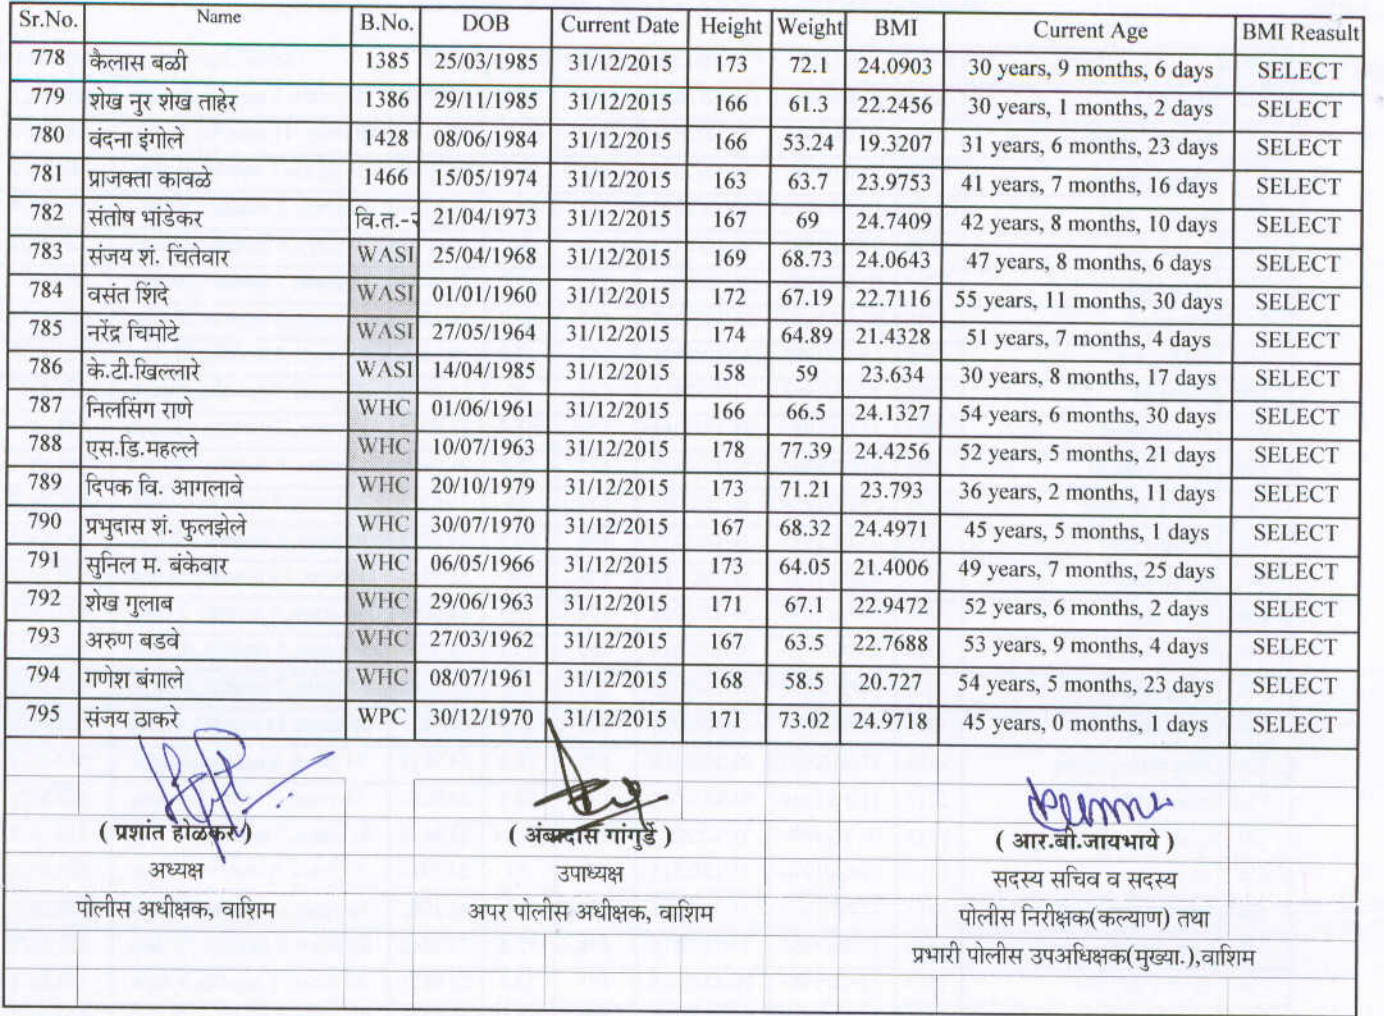 Sr.No. Name B.No. DOB Current Date Height Weight BMI Current Age BMI Reasult
778 कैलास बळी 1385 25/03/1985 31/12/2015 173 72.1 24.0903 30 years, 9 months, 6 days SELECT
779 शेख नुर शेख ताहेर 1386 29/11/1985 31/12/2015 166 61.3 22.2456 30 years, 1 months, 2 days SELECT
780 वंदना इंगोले 1428 08/06/1984 31/12/2015 166 53.24 19.3207 31 years, 6 months, 23 days SELECT
781 प्राजक्ता कावळे 1466 15/05/1974 31/12/2015 163 63.7 23.9753 41 years, 7 months, 16 days SELECT
782 संतोष भांडेकर वि.त.-२ 21/04/1973 31/12/2015 167 69 24.7409 42 years, 8 months, 10 days SELECT
783 संजय शं. चिंतेवार WASI 25/04/1968 31/12/2015 169 68.73 24.0643 47 years, 8 months, 6 days SELECT
784 वसंत शिंदे WASI 01/01/1960 31/12/2015 172 67.19 22.7116 55 years, 11 months, 30 days SELECT
785 नरेंद्र चिमोटे WASI 27/05/1964 31/12/2015 174 64.89 21.4328 51 years, 7 months, 4 days SELECT
786 के.टी.खिल्लारे WASI 14/04/1985 31/12/2015 158 59 23.634 30 years, 8 months, 17 days SELECT
787 निलसिंग राणे WHC 01/06/1961 31/12/2015 166 66.5 24.1327 54 years, 6 months, 30 days SELECT
788 एस.डि.महल्ले WHC 10/07/1963 31/12/2015 178 77.39 24.4256 52 years, 5 months, 21 days SELECT
789 दिपक वि. आगलावे WHC 20/10/1979 31/12/2015 173 71.21 23.793 36 years, 2 months, 11 days SELECT
790 प्रभुदास शं. फुलझेले WHC 30/07/1970 31/12/2015 167 68.32 24.4971 45 years, 5 months, 1 days SELECT
791 सुनिल म. बंकेवार WHC 06/05/1966 31/12/2015 173 64.05 21.4006 49 years, 7 months, 25 days SELECT
792 शेख गुलाब WHC 29/06/1963 31/12/2015 171 67.1 22.9472 52 years, 6 months, 2 days SELECT
793 अरुण बडवे WHC 27/03/1962 31/12/2015 167 63.5 22.7688 53 years, 9 months, 4 days SELECT
794 गणेश बंगाले WHC 08/07/1961 31/12/2015 168 58.5 20.727 54 years, 5 months, 23 days SELECT
795 संजय ठाकरे WPC 30/12/1970 31/12/2015 171 73.02 24.9718 45 years, 0 months, 1 days SELECT
( प्रशांत होळकर ) ( अंबादास गांगुर्डे ) ( आर.बी.जायभाये )
अध्यक्ष उपाध्यक्ष सदस्य सचिव व सदस्य
पोलीस अधीक्षक, वाशिम अपर पोलीस अधीक्षक, वाशिम पोलीस निरीक्षक(कल्याण) तथा
प्रभारी पोलीस उपअधिक्षक(मुख्या.),वाशिम